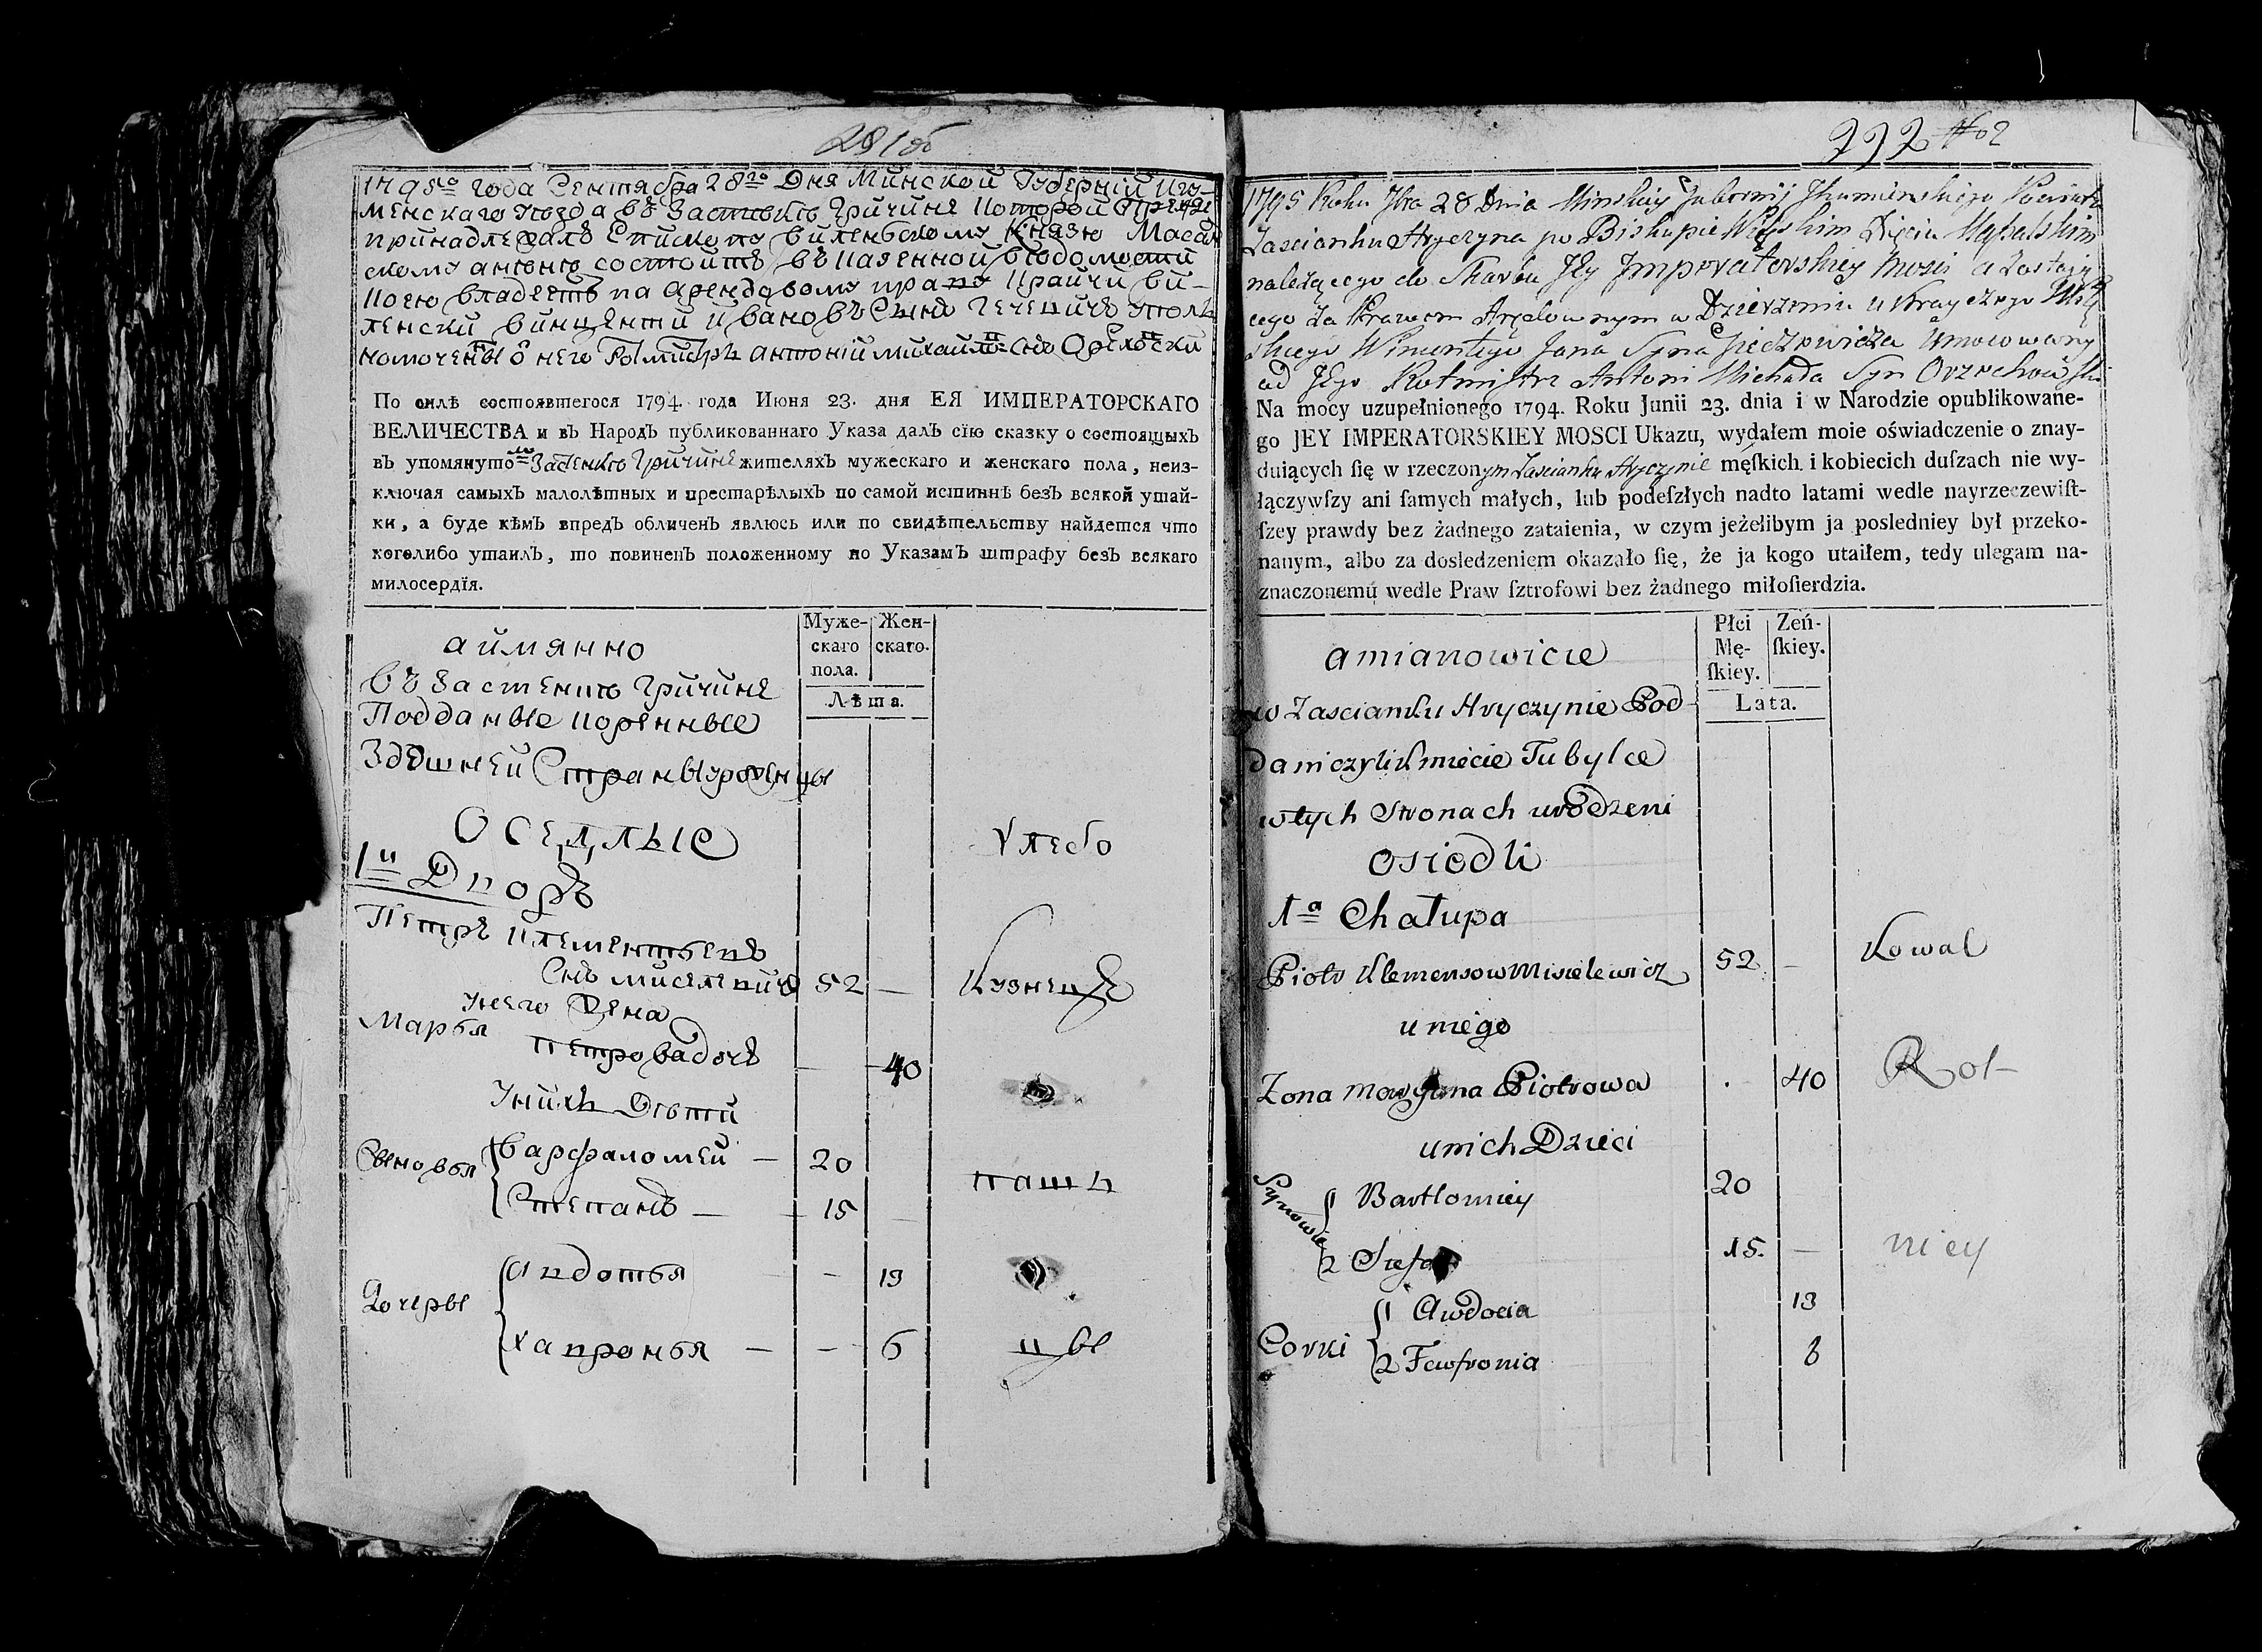 281об
1795го года Сентября 28го Дня Минской Губерний Игу-
менского уезда въ Застенке Гричине которой прежде
принадлежалъ Епископу виленьскому Князю Масал
скому а нонѣ состоитъ въ казенной ведомости
коею владеетъ па арендовому праву крайчи ви-
ленски винценти Ивановъ Сынъ Гечевичъ упол
номочены о него Ротмистръ антоній михайло Снъ Орехоски
По силѣ состоявшегося 1794. года Июня 23. дня ЕЯ ИМПЕРАТОРСКАГО
ВЕЛИЧЕСТВА и въ НародЪ публикованнаго Указа далЪ сїю сказку о состоящыхЪ
въ упомянуто Застенке Гричине жителяхЪ мужескаго и женскаго пола, неиз-
ключая самыхЪ малолѣтныхъ и престарѣлыхЪ по самой истиннѣ безЪ всякой утай-
ки, а буде кѣмЪ впредЪ обличенЪ явлюсь или по свидѣтельству найдется что
коголибо утаилЪ, то повиненЪ положенному по УказамЪ штрафу безЪ всякаго
милосердїя.
Муже-
скаго
пола.
Жен-
скаго.
Лѣта.
аймянно
въ Застенке Гричине
Подданые коренные
Здешней Страны уроженцы
Оседлые
Хлебо
1й Дворъ
Петръ Клементьевъ
Снъ мисялевичъ 52 — Кузнецъ
у него Жена
Марья Петрова дочъ — 40
У нихъ Дети
Сыновья
Варфаломей — 20
пашъ
Степанъ — 15 —
Дочеры
Авдотья — 13
Хавронья — — 6
цы
292 No 2
1795 Roku 7bra 28 Dnia Minskiey Gubernij Ihumienskiego Powiatu
Zascianku Hryczyna po Biskupie Wileńskim Xięciu Massalskim
należącego do Skarbu Jey Imperatorskiey Mosci a zostaią
cego za Prawem Aręndownym w Dzierzeniu u Krayczego Wileń
skiego Wincentego Jana Syna Gieczewicza Umocowany
od Jego Rotmistrz Antoni Michała Syn Orzechowski
Na mocy uzupełnionego 1794. Roku Junii 23. dnia i w Narodzie opublikowane-
go JEY IMPERATORSKIEY MOSCI Ukazu, wydałem moie oświadczenie o znay-
duiących ſię w rzeczonym Zascianku Hryczynie męſkich. i kobiecich duſzach nie wy-
łączywſzy ani ſamych małych, lub podeſzłych nadto latami wedle nayrzeczewiſt-
ſzey prawdy bez żadnego zataienia, w czym jeżelibym ja posledniey był przeko-
nanym, albo za dosledzeniem okazało ſię, że ja kogo utaiłem, tedy ulegam na-
znaczonemu wedle Praw ſztrofowi bez żadnego miłoſierdzia.
Płci
Mę-
ſkiey.
Zeń-
ſkiey.
Lata.
amianowicie
w Zascianku Hryczynie Pod-
dani czyli Kmiecie Tubylce
w tych Stronach urodzeni
Osiedli
1a Chałupa
Piotr Klemensow Misielewicz 52 — Kowal
u niego
Zona Maryanna Piotrowa . 40
Rol-
u nich Dzieci
Synowie
1 Bartłomiey 20
2 Stefan 15. —
niey
Corki
1 Awdocia 13
2 Fewfronia 8